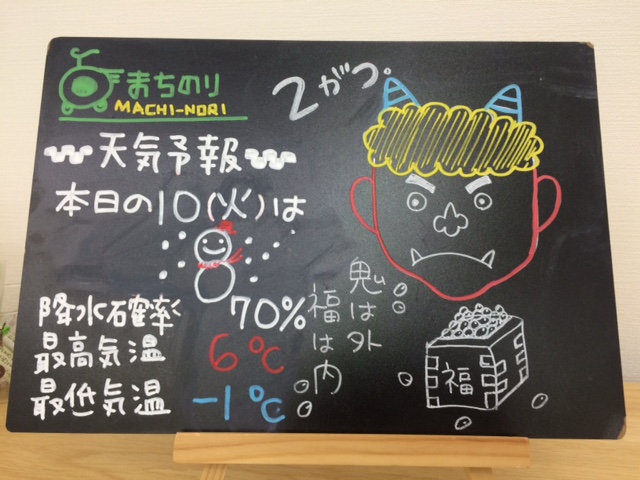 まちのり
MACHI-NORI
2がつ。
天気予報
本日の10(火)は
降水確率 70%
最高気温 6℃
最低気温 -1℃
鬼は外
福は内
福